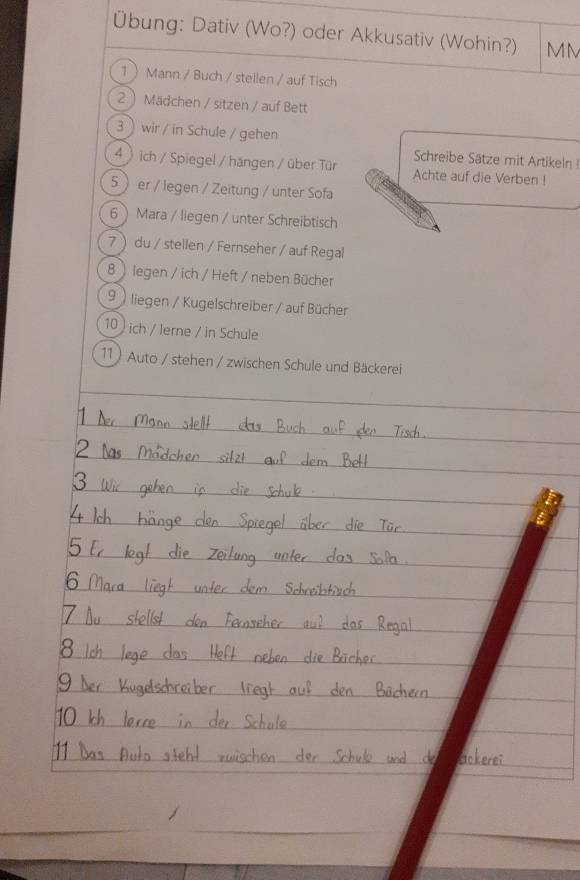 Übung: Dativ (Wo?) oder Akkusativ (Wohin?)
1 Mann / Buch / stellen / auf Tisch
2 Mädchen / sitzen / auf Bett
3 wir / in Schule / gehen
4 ich / Spiegel / hängen / über Tür
5 er / legen / Zeitung / unter Sofa
6 Mara / liegen / unter Schreibtisch
7 du / stellen / Fernseher / auf Regal
8 legen / ich / Heft / neben Bücher
9 liegen / Kugelschreiber / auf Bücher
10 ich / lerne / in Schule
11 Auto / stehen / zwischen Schule und Bäckerei
Schreibe Sätze mit Artikeln !
Achte auf die Verben !
1 Der Mann stellt das Buch auf den Tisch.
2 Das Mädchen sitzt auf dem Bett
3 Wir gehen in die Schule.
4 Ich hänge den Spiegel über die Tür.
5 Er legt die Zeitung unter das Sofa.
6 Mara liegt unter dem Schreibtisch
7 Du stellst den Fernseher auf das Regal
8 Ich lege das Heft neben die Bücher
9 Der Kugelschreiber liegt auf den Büchern
10 Ich lerne in der Schule
11 Das Auto steht zwischen der Schule und